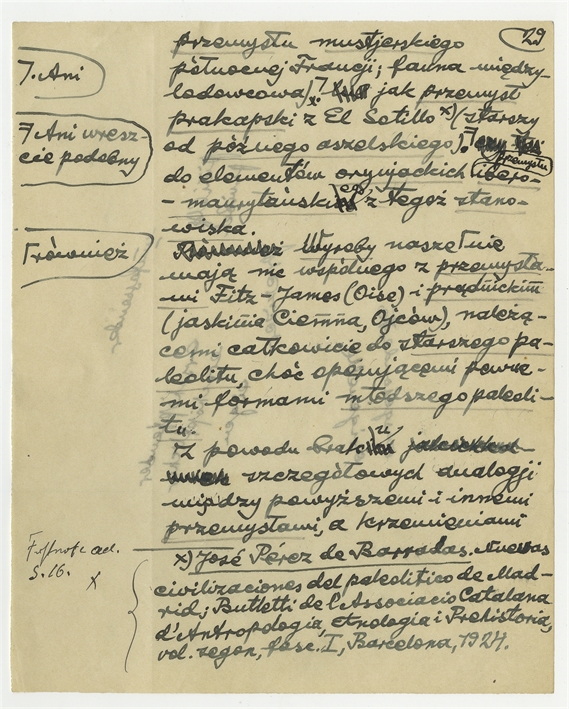 29
przemysłu mustjerskiego
północnej Francji; fauna między-
lodowcowa).⁷ jak przemysł
prakapski z El Sotillo x) (starszy
od późnego aszelskiego).⁷
przemysłu
do elementów oryniackich ibero-
- maurytańskiego z tegoż stano-
wiska.
Wyroby nasze nie
mają nic wspólnego z przemysła-
mi Fitz-James (Oise) i prądnickim
(jaskinia Ciemna, Ojców), należą-
cemi całkowicie do starszego pa-
leolitu, choć operującemi pewne-
mi formami młodszego paleoli-
tu.
Z powodu braku
szczegółowych analogji
między powyższemi i innemi
przemysłami, a krzemieniami
x) José Pérez de Barradas. Nuevas
civilizaciones del paleolitico de Mad-
rid; Butlletí de l'Associacio Catalana
d'Antropologia, Etnologia i Prehistoria,
vol. segon, fasc. I, Barcelona, 1924.
7. Ani
7 Ani wresz-
cie podobny
Również
ad.
S. 16.
x